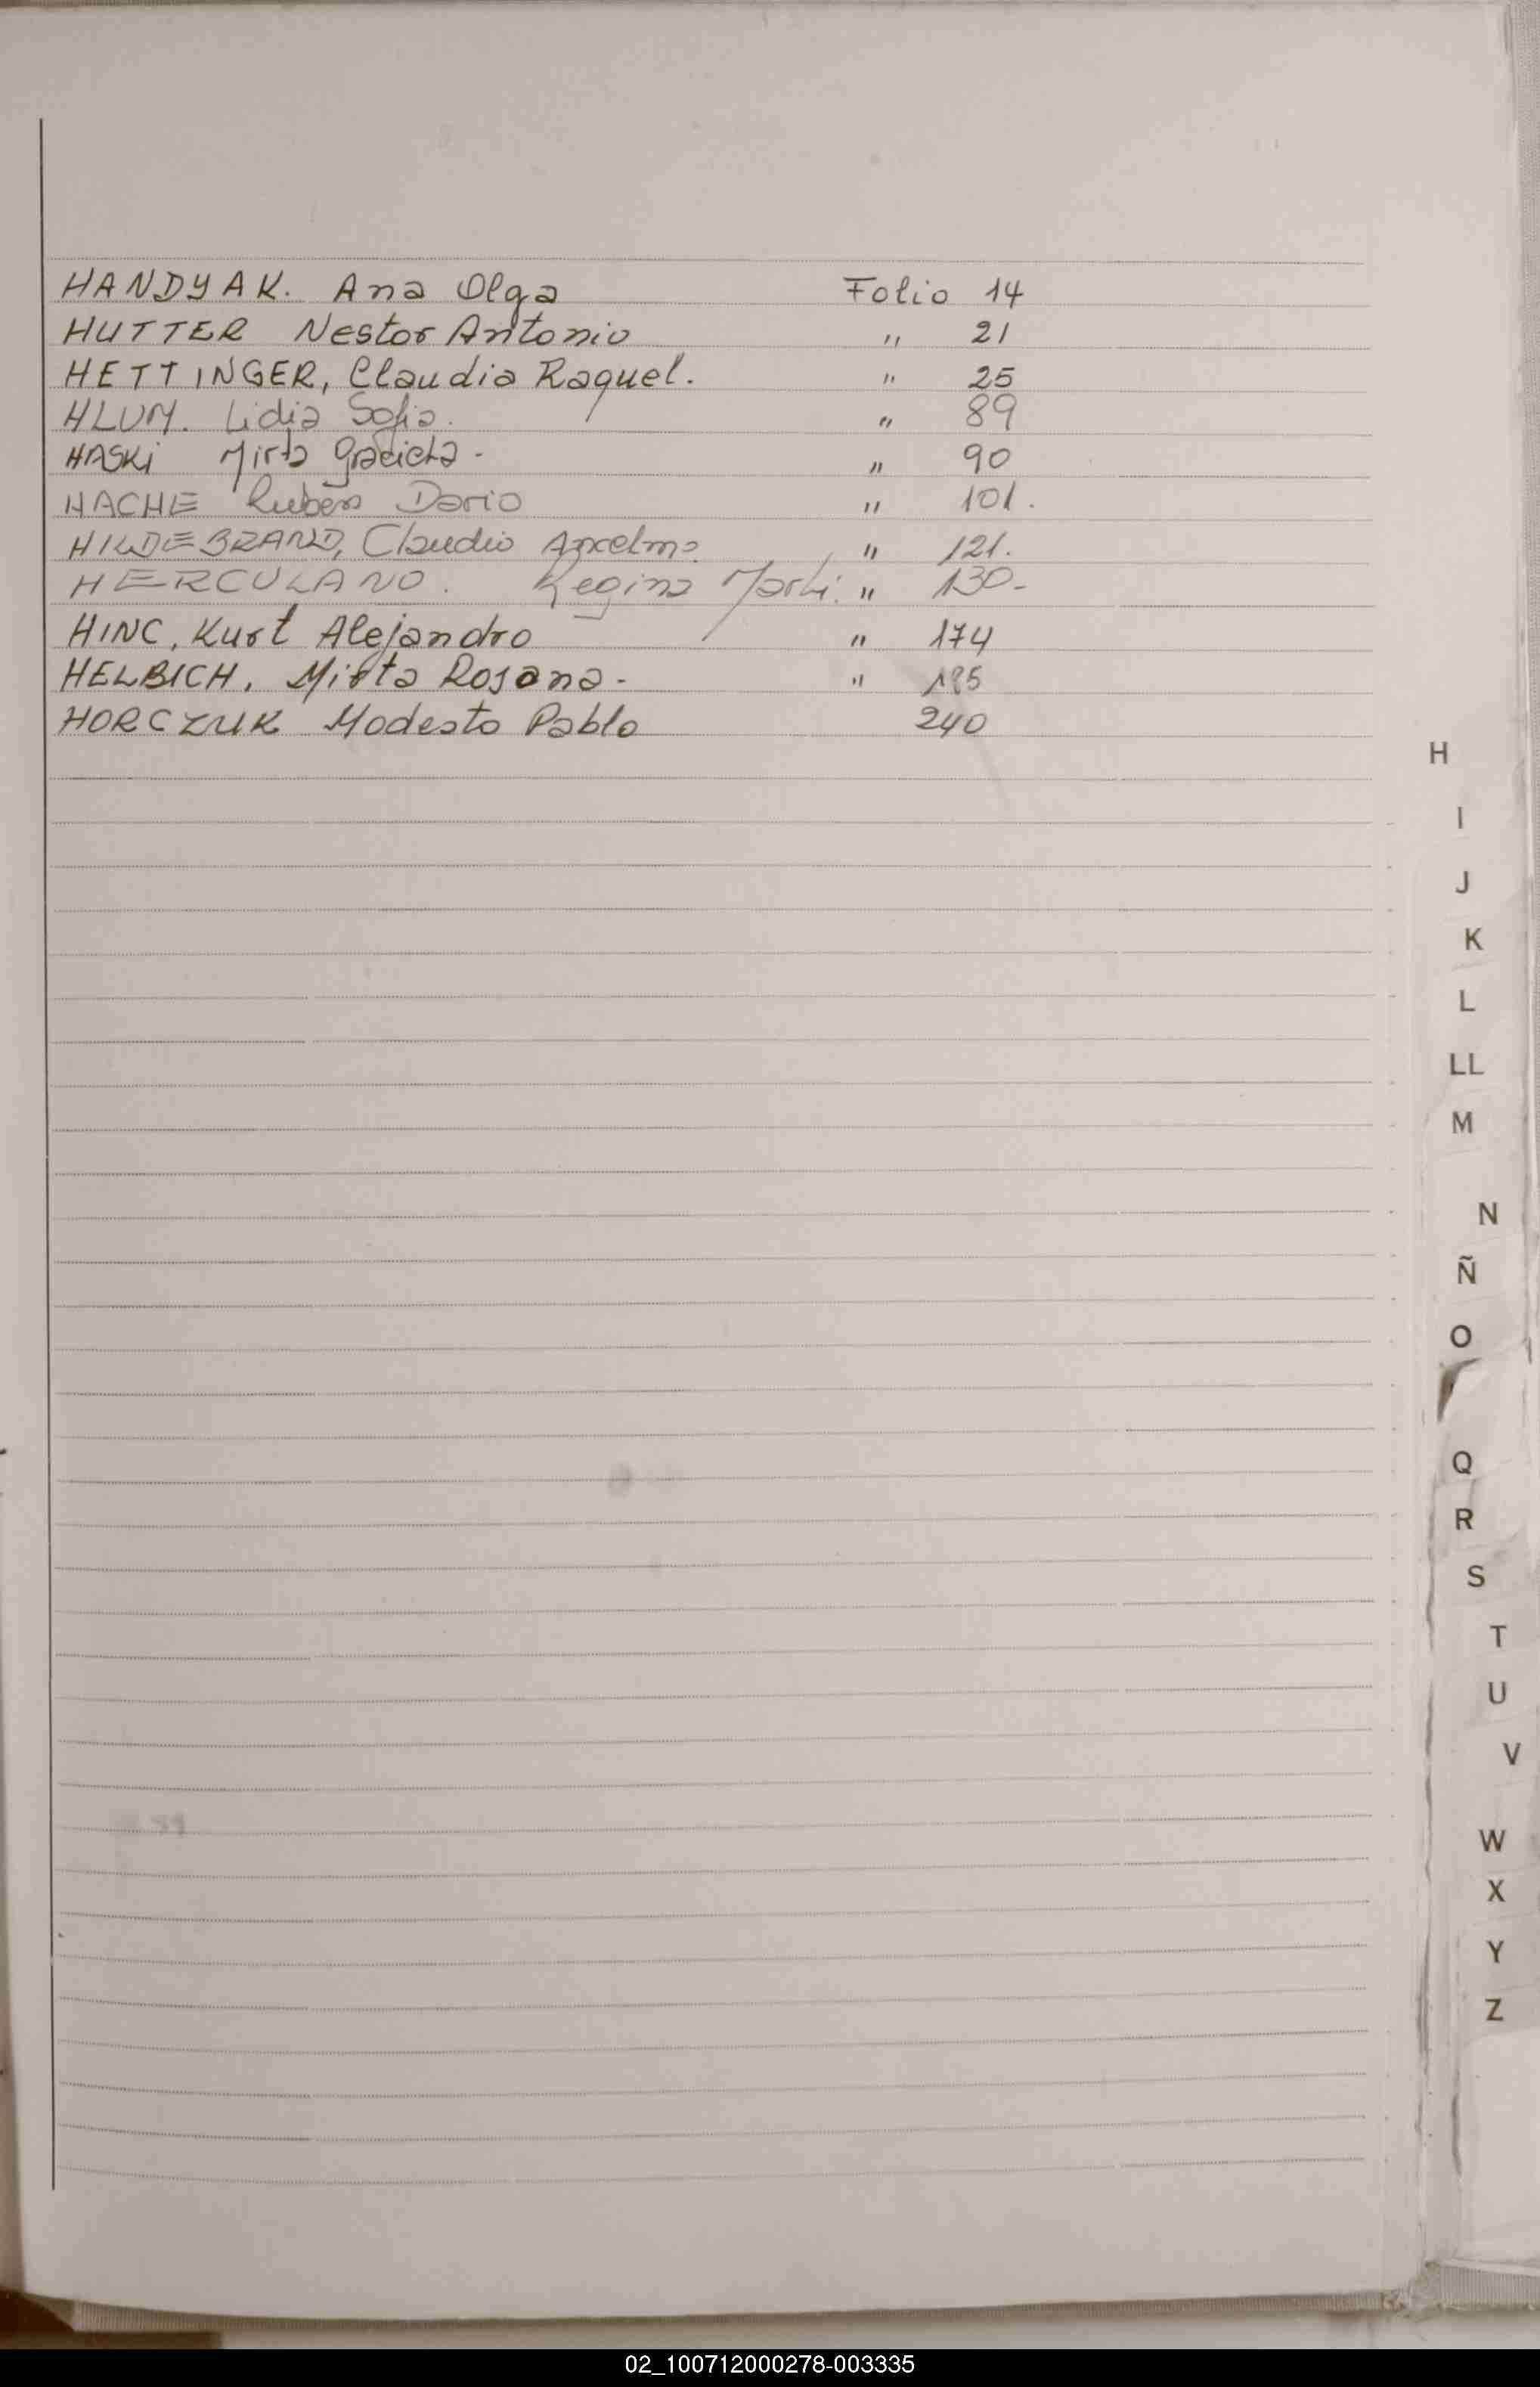 HANDYAK. Ana Olga Folio 14
HUTTER Nestor Antonio " 21
HETTINGER, Claudia Raquel. " 25
HLUM. Lidia Sofia. " 89
HASKi Mirta Graciela - " 90
HACHE Ruben Dario " 101.
HILDEBRAND, Claudio Anselmo " 121.
HERCULANO. Regina " 130-
HINC, Kurt Alejandro " 174
HELBICH, Mirta Rosana - " 195
HORCZUK Modesto Pablo 240
H
I
J
K
L
LL
M
N
Ñ
O
Q
R
S
T
U
V
W
X
Y
Z
02_100712000278-003335